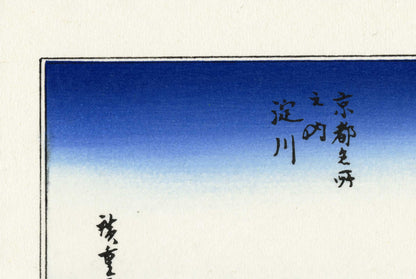 京都名所
之内
淀川
廣重